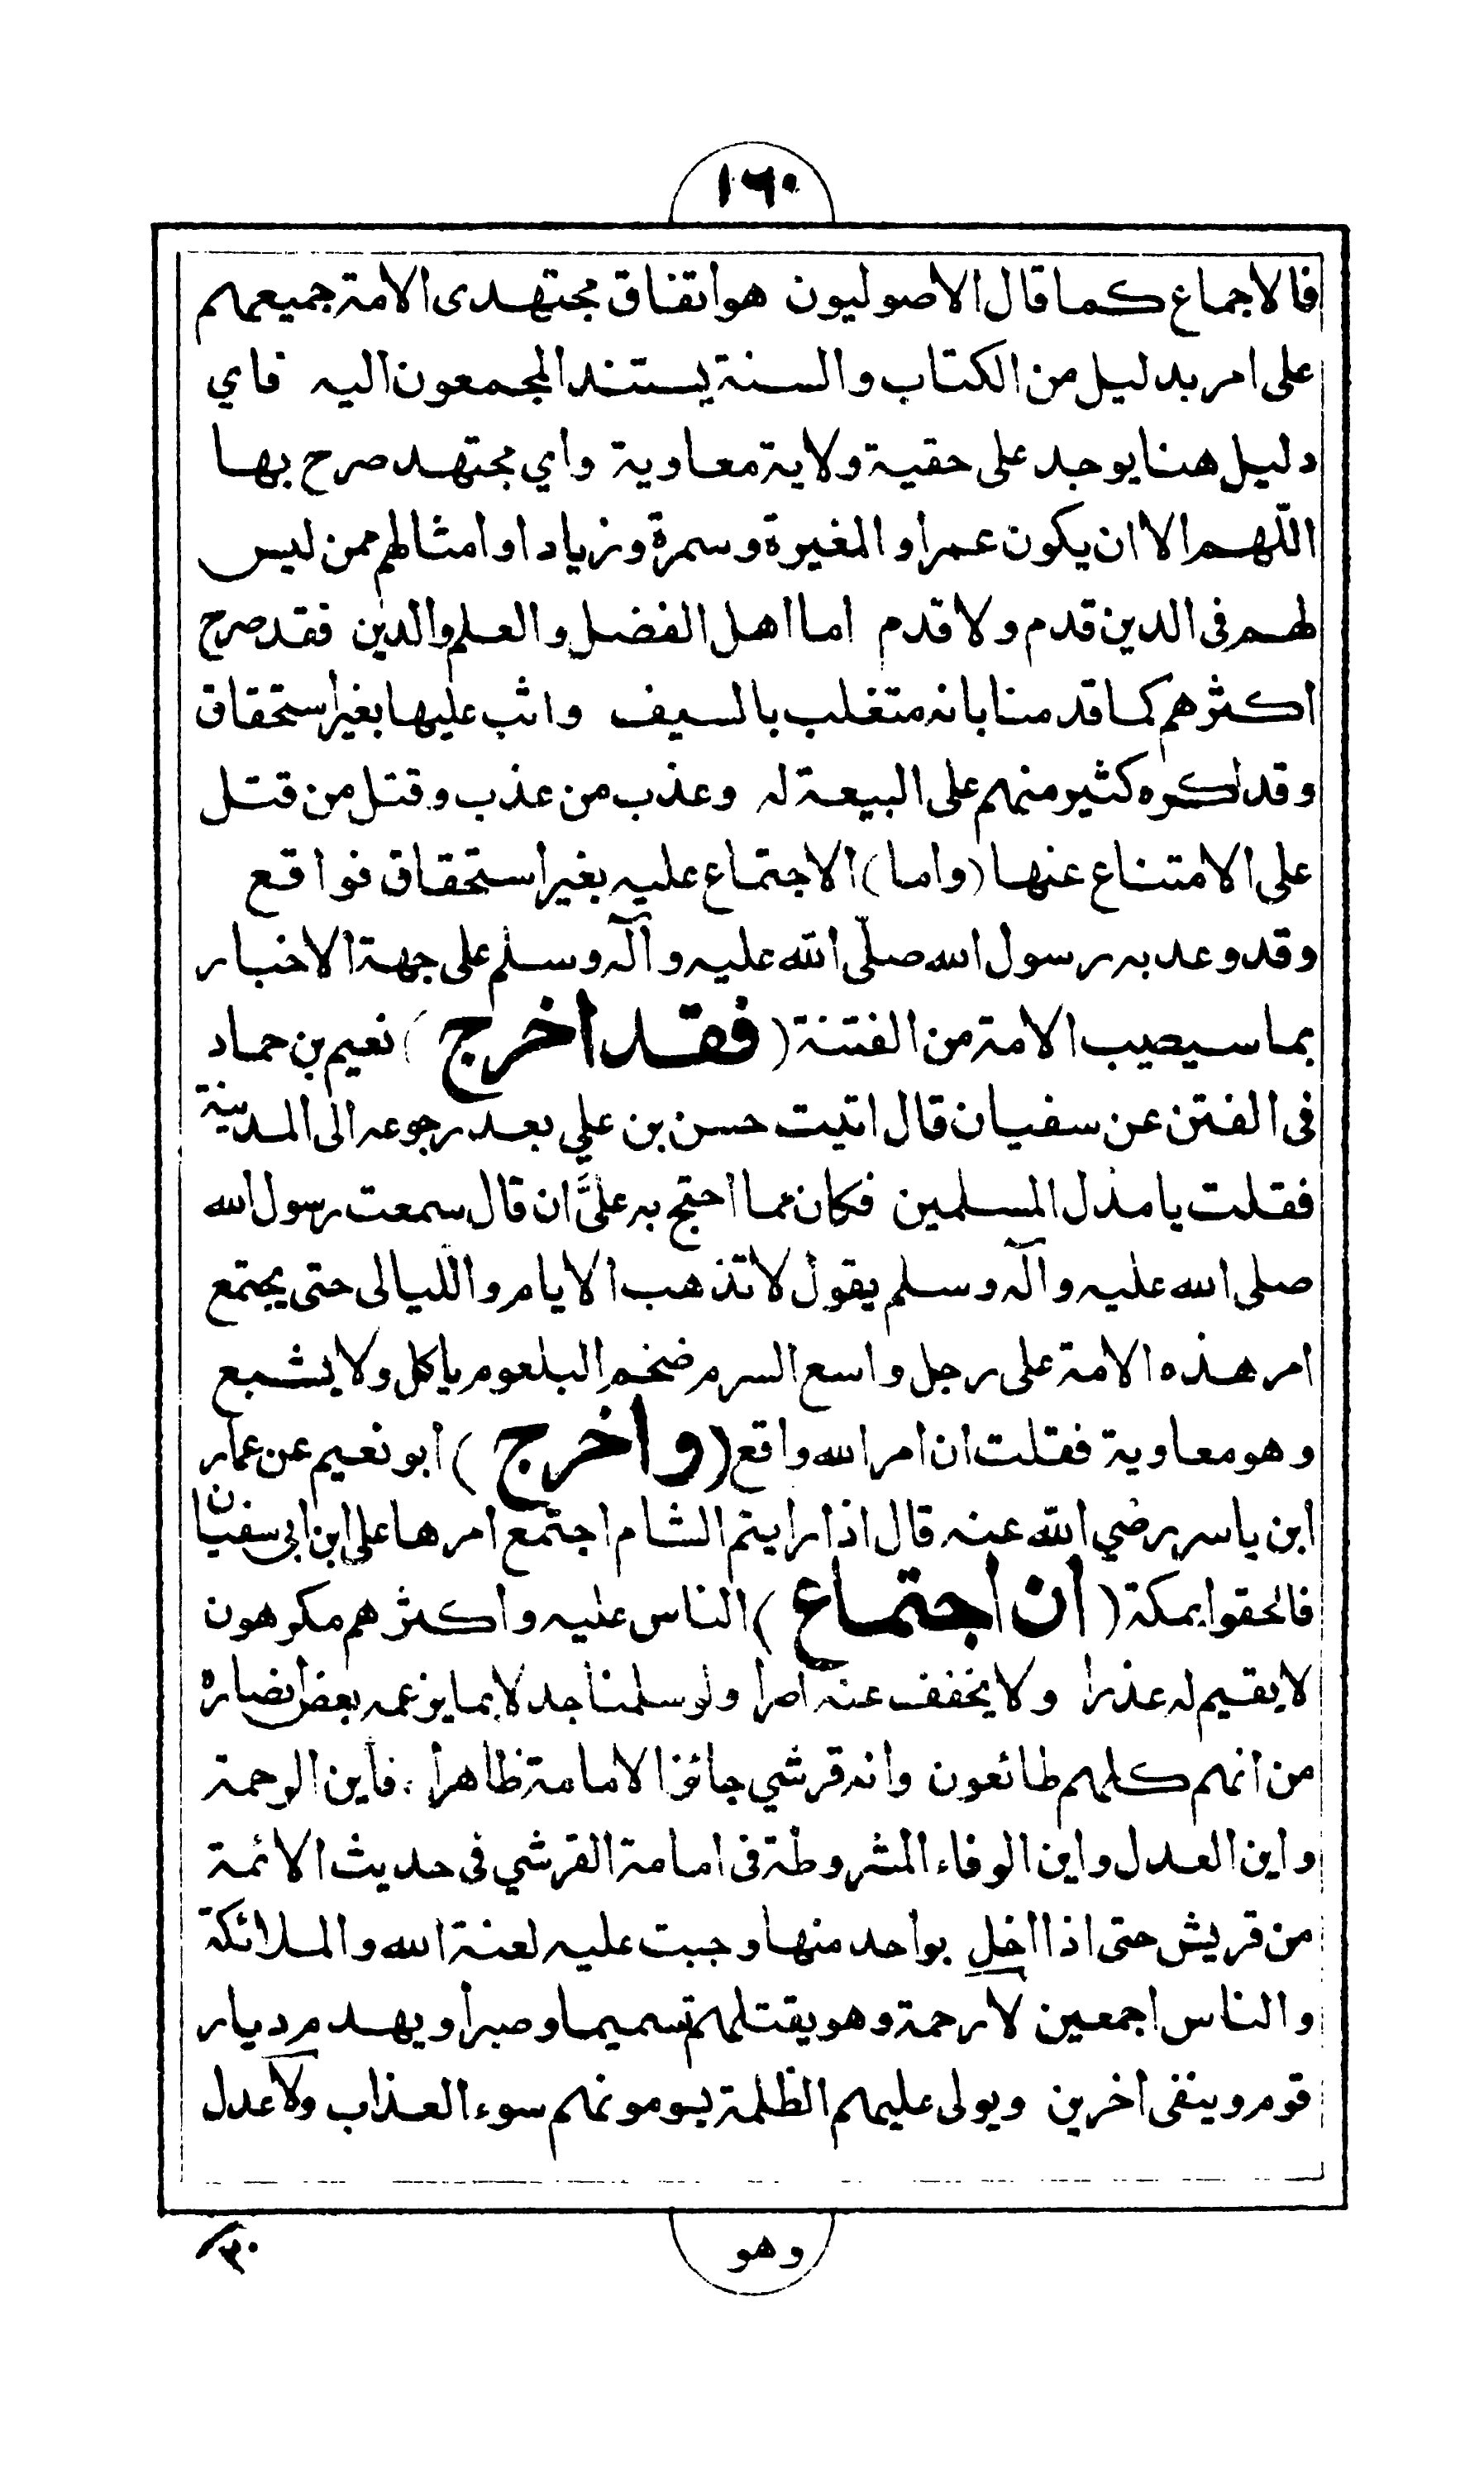 ١٦٠
فالاجماع كما قال الاصوليون هو اتفاق مجتهدى الامة جميعهم
على امر بدليل من الكتاب والسنة يستند المجمعون اليه فاي
دليل هنا يوجد على حقية ولاية معاوية واي مجتهد صرح بها
اللّهم الا ان يكون عمرا والمغيرة وسمرة وزياد او امثالهم ممن ليس
لهم فى الدين قدم ولا قدم اما اهل الفضل والعلم والدين فقد صرح
اكثرهم كما قدمنا بانه متغلب بالسيف واثب عليها بغير استحقاق
وقد اكره كثير منهم على البيعة له وعذب من عذب وقتل من قتل
على الامتناع عنها (واما) الاجتماع عليه بغير استحقاق فواقع
وقد وعد به رسول الله صلّى الله عليه وآله وسلم على جهة الاخبار
بما سيصيب الامة من الفتنة (فقد اخرج) نعيم بن حماد
فى الفتن عن سفيان قال اتيت حسن بن علي بعد رجوعه الى المدينة
فقلت يا مذل المسلمين فكان مما احتج به علىَّ ان قال سمعت رسول الله
صلى الله عليه وآله وسلم يقول لا تذهب الايام والليالى حتى يجتمع
امر هذه الامة على رجل واسع السرم ضخم البلعوم ياكل ولا يشبع
وهو معاوية فقلت ان امر الله واقع (واخرج) ابو نعيم عن عمار
ابن ياسر رضي الله عنه قال اذا رايتم الشام اجتمع امرها على ابن ابى سفيان
فالحقوا بمكة (ان اجتماع) الناس عليه واكثرهم مكرهون
لا يقيم له عذرا ولا يخفف عنه اصرا ولو سلمنا جدلا بما يزعمه بعض انصاره
من انهم كلهم طائعون وانه قرشي جائز الامامة ظاهرا، فأين الرحمة
واين العدل واين الوفاء المشروطة فى امامة القرشي فى حديث الائمة
من قريش حتى اذا اخل بواحد منها وجبت عليه لعنة الله والملائكة
والناس اجمعين لا رحمة وهو يقتلهم تسميما وصبرا ويهدم ديار
قوم وينفى اخرين ويولى عليهم الظلمة يسومونهم سوء العذاب ولا عدل
وهو
٣٠